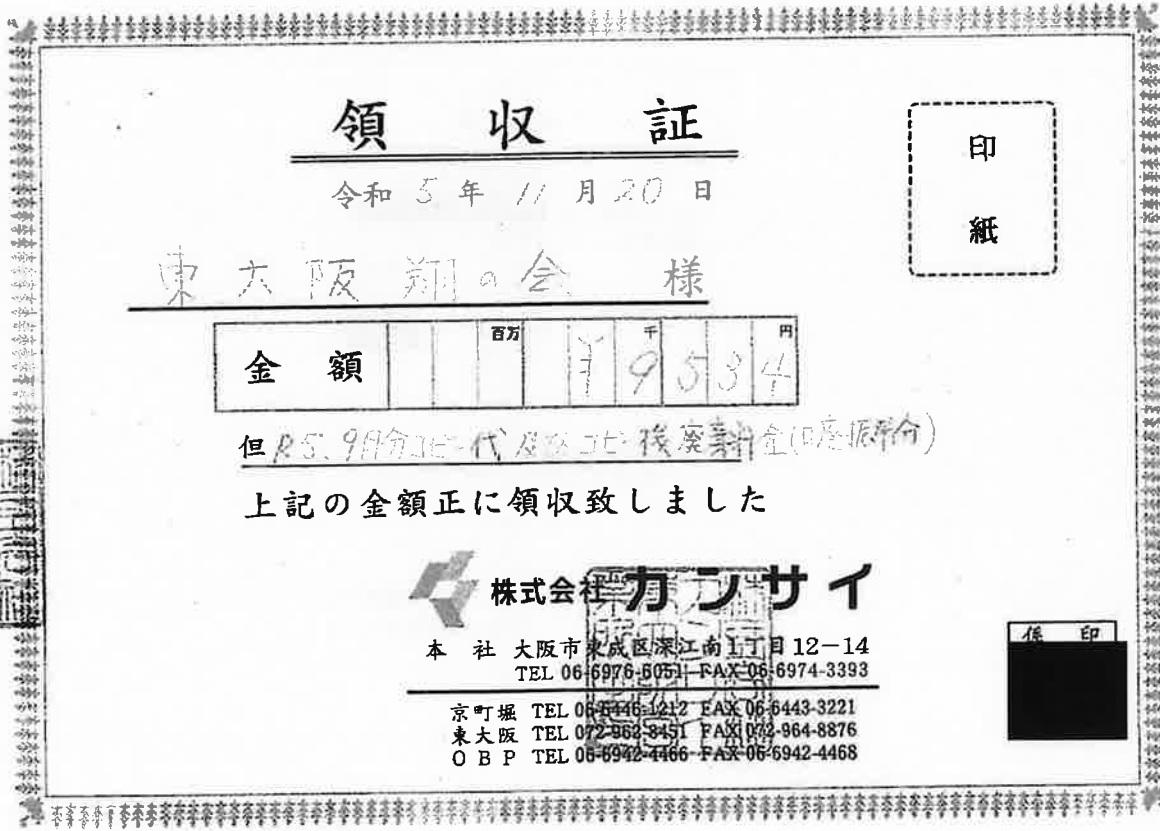 領収証
印紙
令和 5 年 11 月 20 日
東大阪翔の会 様
金額 百万 千 円 ¥9534
但 R5.9月分コピー代及びコピー機廃棄料金(口座振替分)
上記の金額正に領収致しました
株式会社カンサイ
本社 大阪市東成区深江南1丁目12-14
TEL 06-6976-6051 FAX 06-6974-3393
京町堀 TEL 06-6446-1212 FAX 06-6443-3221
東大阪 TEL 072-962-8451 FAX 072-964-8876
OBP TEL 06-6942-4466 FAX 06-6942-4468
係印